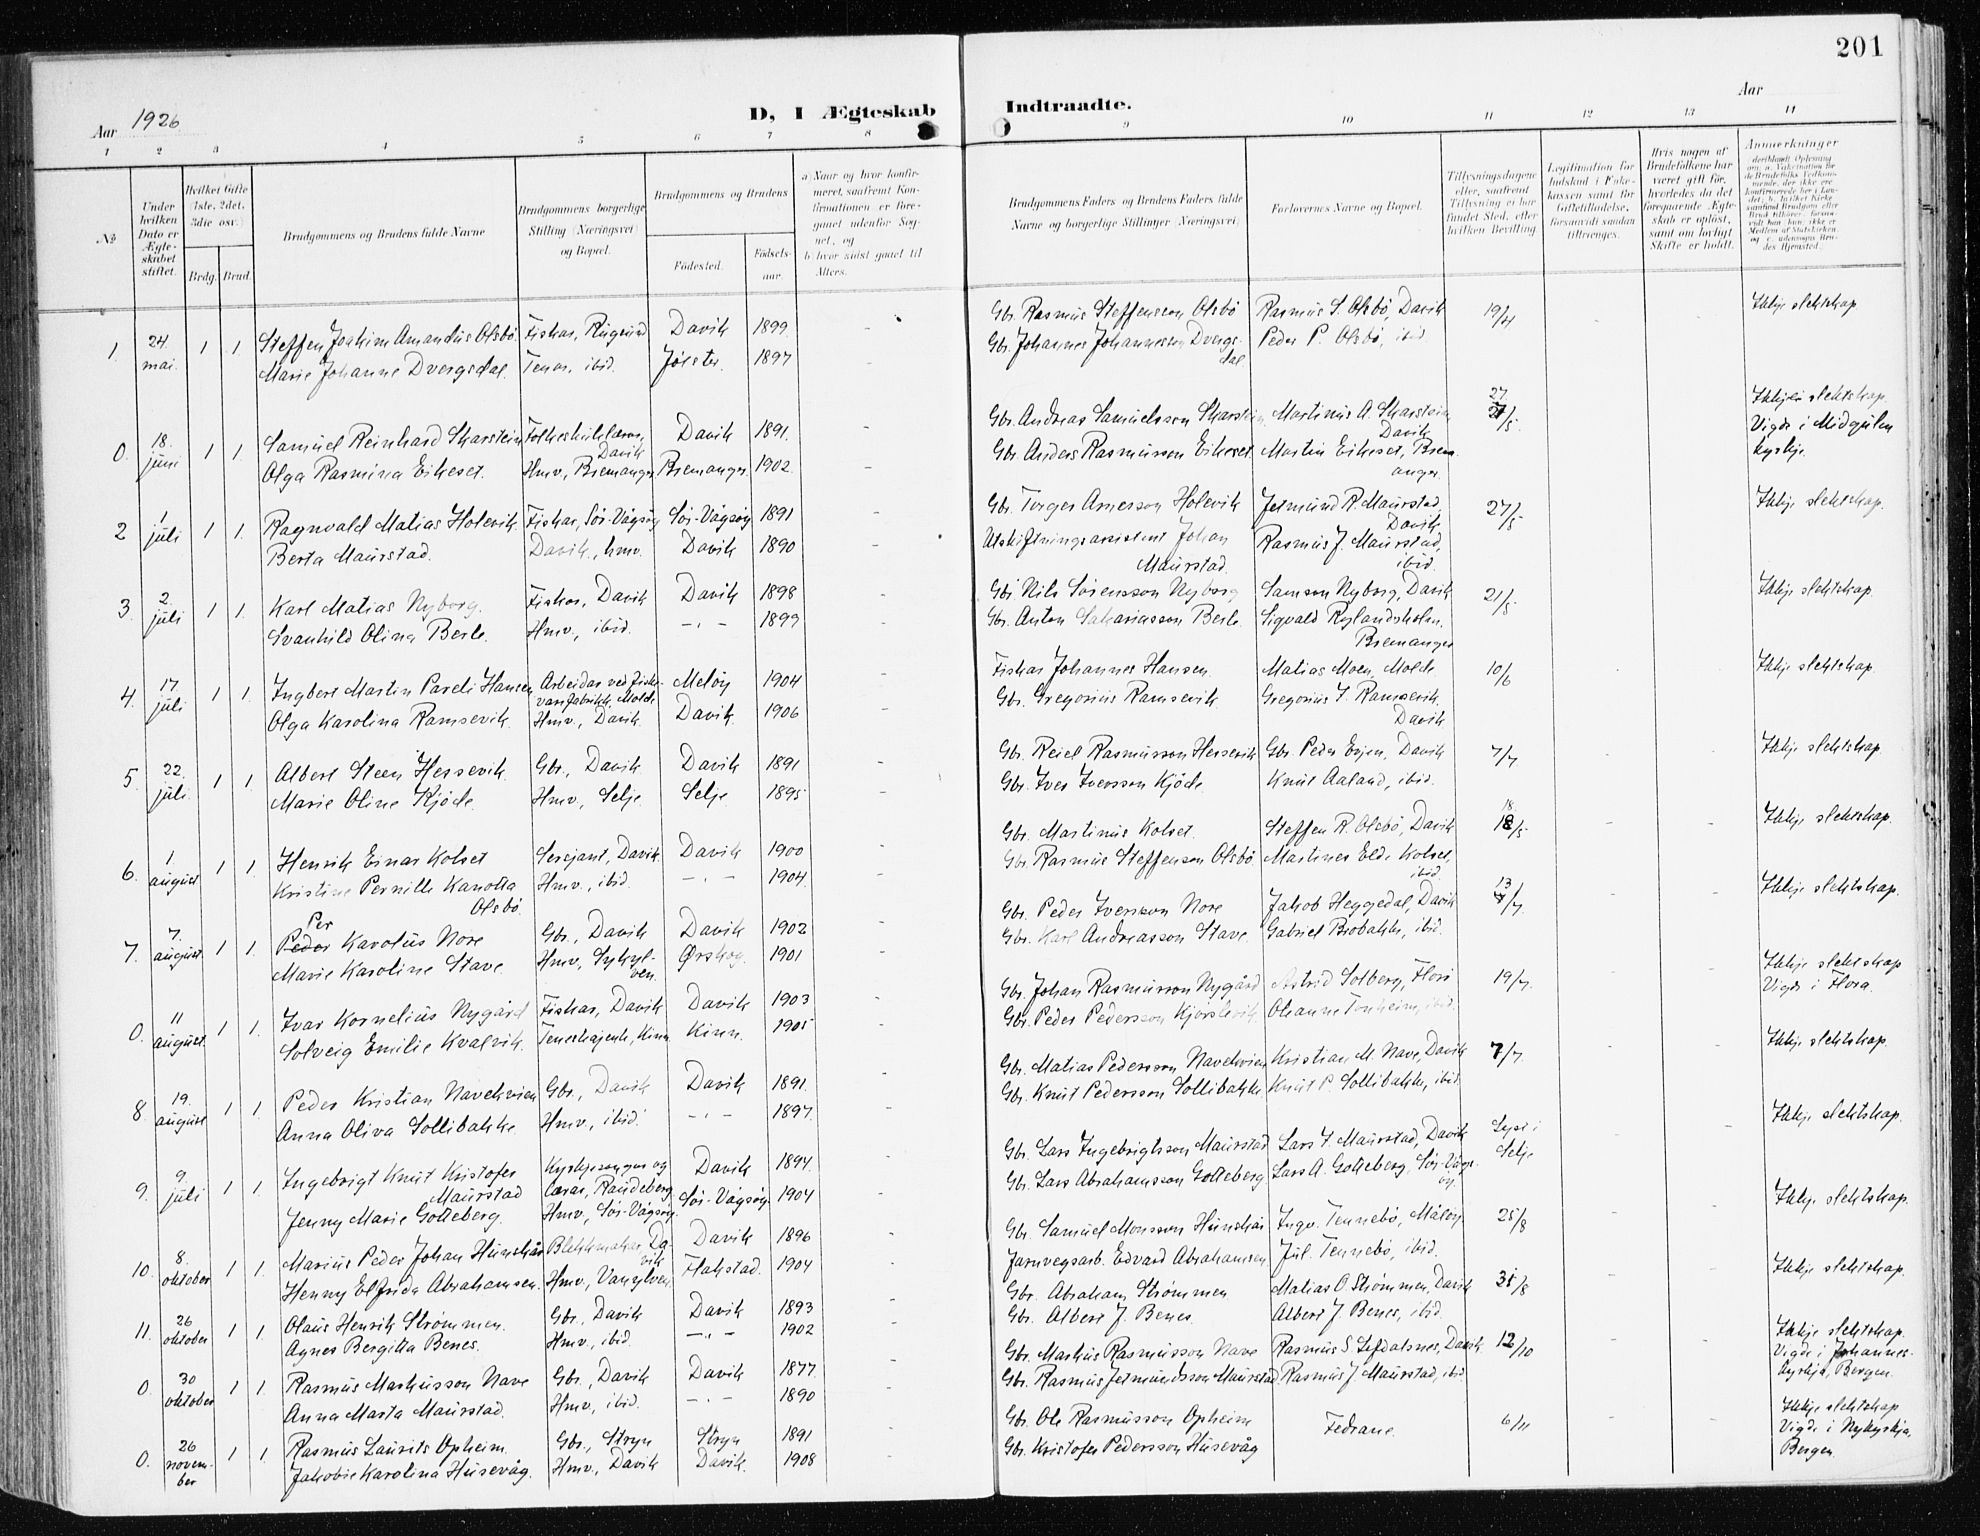 201
Aar 1926
D, I Ægteskab Indtraadte.
Aar
1 2 3 4 5 6 7 8 9 10 11 12 13 14
№
Under hvilken Dato er Ægteskabet stiftet.
Hvilket Gifte (1ste, 2det, 3die osv.)
Brdg. Brud.
Brudgommens og Brudens fulde Navne
Brudgommens borgerlige Stilling (Næringsvei) og Bopæl.
Brudgommens og Brudens
Födested. Födselsaar.
a) Naar og hvor konfirmeret, saafremt Konfirmationen er foregaaet udenfor Sognet, og
b) hvor sidst gaaet til Alters.
Brudgommens Faders og Brudens Faders fulde Navne og borgerlige Stillinger (Næringsvei)
Forlovernes Navne og Bopæl.
Tillysningsdagene eller, saafremt Tillysning ei har fundet Sted, efter hvilken Bevilling.
Legitimation for Indskud i Enkekassen samt for Giftetilladelse, forsaavidt saadan tiltrænges.
Hvis nogen af Brudefolkene har været gift før, hvorledes da det foregaaende Ægteskab er oplöst, samt om lovligt Skifte er holdt.
Anmerkninger
1. 24. mai. 1 1. Steffen Joakim Amandus Olsbö. Fiskar, Rugsund Davik 1899 Gbr. Rasmus Steffensson Olsbö Rasmus S. Olsbö, Davik 19/4 Ikkje slektskap
Marie Johanne Dvergsdal. Tenar, ibid. Jölster. 1897 Gbr. Johannes Johannesson Dvergsdal Peder P. Olsbö, ibid.
0. 18. juni 1 1. Samuel Reinhard Skarstein Folkeskulelærar, Davik Davik 1891. Gbr. Andreas Samuelsson Skarstein Martinus A. Skarstein Davik 27/5. Ikkje slektskap.
Olga Rasmina Eikeset. Hmv., Bremanger Bremanger 1902. Gbr. Anders Rasmusson Eikeset Martin Eikeset, Bremanger. Vigde i Midgulen kyrkje.
2 1 juli 1 1. Ragnvald Matias Holevik Fiskar, Sör-Vågsöy Sör-Vågsöy 1891 Gbr. Torger Arnesson Holevik Jetmund R. Maurstad, Davik 27/5 Ikkje slektskap.
Berta Maurstad. Davik, hmv. Davik 1890 Utskiftningsassistent Johan Maurstad. Rasmus J. Maurstad, ibid.
3. 2. juli 1 1. Karl Matias Nyborg. Fiskar, Davik Davik 1898 Gbr. Nils Sörensson Nyborg Samson Nyborg, Davik 21/5 Ikkje slektskap.
Svanhild Olina Berle. Hmv., ibid. -.- 1899 Gbr. Anton Sakariasson Berle Sigvald Rylandsholm, Bremanger
4. 17. juli 1 1 Ingbert Martin Pareli Hansen Arbeidar ved Fiskevarefabrikk, Molde Melöy 1904 Fiskar Johannes Hansen. Matias Moen, Molde 10/6 Ikkje slektskap.
Olga Karolina Ramsevik Hmv., Davik. Davik. 1906 Gbr. Gregorius Ramsevik. Gregorius J. Ramsevik. Davik
5. 22. juli. 1 1. Albert Steen Hessevik. Gbr., Davik Davik 1891 Gbr. Reiel Rasmusson Hessevik Gbr. Peder Evjen, Davik 7/7 Ikkje slektskap.
Marie Oline Kjöde. Hmv., Selje. Selje 1895 Gbr. Iver Iversson Kjöde. Knut Aaland, ibid.
6. 1 august 1 1. Henrik Einar Kolset Sersjant, Davik. Davik 1900 Gbr. Martinus Kolset. Steffen R. Olsbö, Davik 18/5 Ikkje slektskap.
Kristine Pernille Kanotta Olsbö. Hmv., ibid. -.- 1904. Gbr. Rasmus Steffenson Olsbö Martines Elde Kolset, ibid.
7. 7. august 1 1. Per Peder Karolus Nore Gbr., Davik Davik 1902 Gbr. Peder Iversson Nore Jakob Heggedal, Davik 13/7. Ikkje slektskap.
Marie Karoline Stave. Hmv., Sykylven. Ørskog. 1901 Gbr. Karl Andreasson Stave. Gabriel Brobakke, ibid.
0. 11 august. 1 1. Ivar Kornelius Nygård Fiskar, Davik Davik 1903 Gbr. Johan Rasmusson Nygård Astrid Solberg, Florö 19/7. Ikkje slektskap
Solveig Emilie Kvalvik. Teneshajente, Kinn Kinn. 1905 Gbr. Peder Pedersson Kjörslevik Ohanne Tonheim, ibid. Vigde i Flora.
8. 19. august 1 1. Peder Kristian Navekvien Gbr., Davik Davik 1891. Gbr. Matias Pedersson Navekvien Kristian M. Nave, Davik 7/7. Ikkje slektskap.
Anna Oliva Sollibakke. Hmv., ibid. -.- 1897. Gbr. Knut Pedersson Sollibakke Knut P. Sollibakke, ibid.
9. 9. juli 1 1. Ingebrigt Knut Kristofer Maurstad Kyrkjesongar og lærar, Raudeberg Davik 1894. Gbr. Lars Ingebrigtsson Maurstad Lars I. Maurstad, Davik Lyst i Selje Ikkje slektskap.
Jenny Marie Gotteberg. Hmv., Sör-Vågsöy. Sör-Vågsöy 1904 Gbr. Lars Abrahamsson Gotteberg Lars A. Gotteberg, Sör-Vågsöy.
10. 8. oktober 1 1. Marius Peder Johan Hunskår Blekkmakar, Davik Davik 1896 Gbr. Samuel Monsson Hunskår Ingv. Tennebö, Målöy. 25/8 Ikkje slektskap.
Henny Elfrida Abrahamsen. Hmv., Vanylven. Flakstad. 1904 Jarnvegsarb. Edvard Abrahamsen Jul. Tennebö, ibid.
11. 26 oktober 1 1. Olaus Henrik Strømmen. Gbr., Davik Davik 1893 Gbr. Abraham Strømmen Matias O. Strømmen, Davik 31/8 Ikkje slektskap.
Agnes Bergitta Benes. Hmv., ibid. -.- 1902 Gbr. Albert J. Benes. Albert J. Benes, ibid.
0. 30 oktober 1 1. Rasmus Markusson Nave Gbr., Davik Davik 1877. Gbr. Markus Rasmusson Nave Rasmus S. Lefdalsnes, Davik 12/10 Ikkje slektskap.
Anna Marta Maurstad. Hmv., ibid. -.- 1890 Gbr. Rasmus Jetmundsson Maurstad. Rasmus J Maurstad, ibid. Vigde i Johanneskyrkja, Bergen.
0. 26 november 1 1. Rasmus Laurits Opheim. Gbr., Stryn Stryn 1891 Gbr. Ole Rasmusson Opheim Fedrane. 6/11 Ikkje slektskap
Jakobie Karolina Husevåg. Hmv., Davik Davik. 1908 Gbr. Kristofer Pedersson Husevåg Vigde i Nykyrkja, Bergen